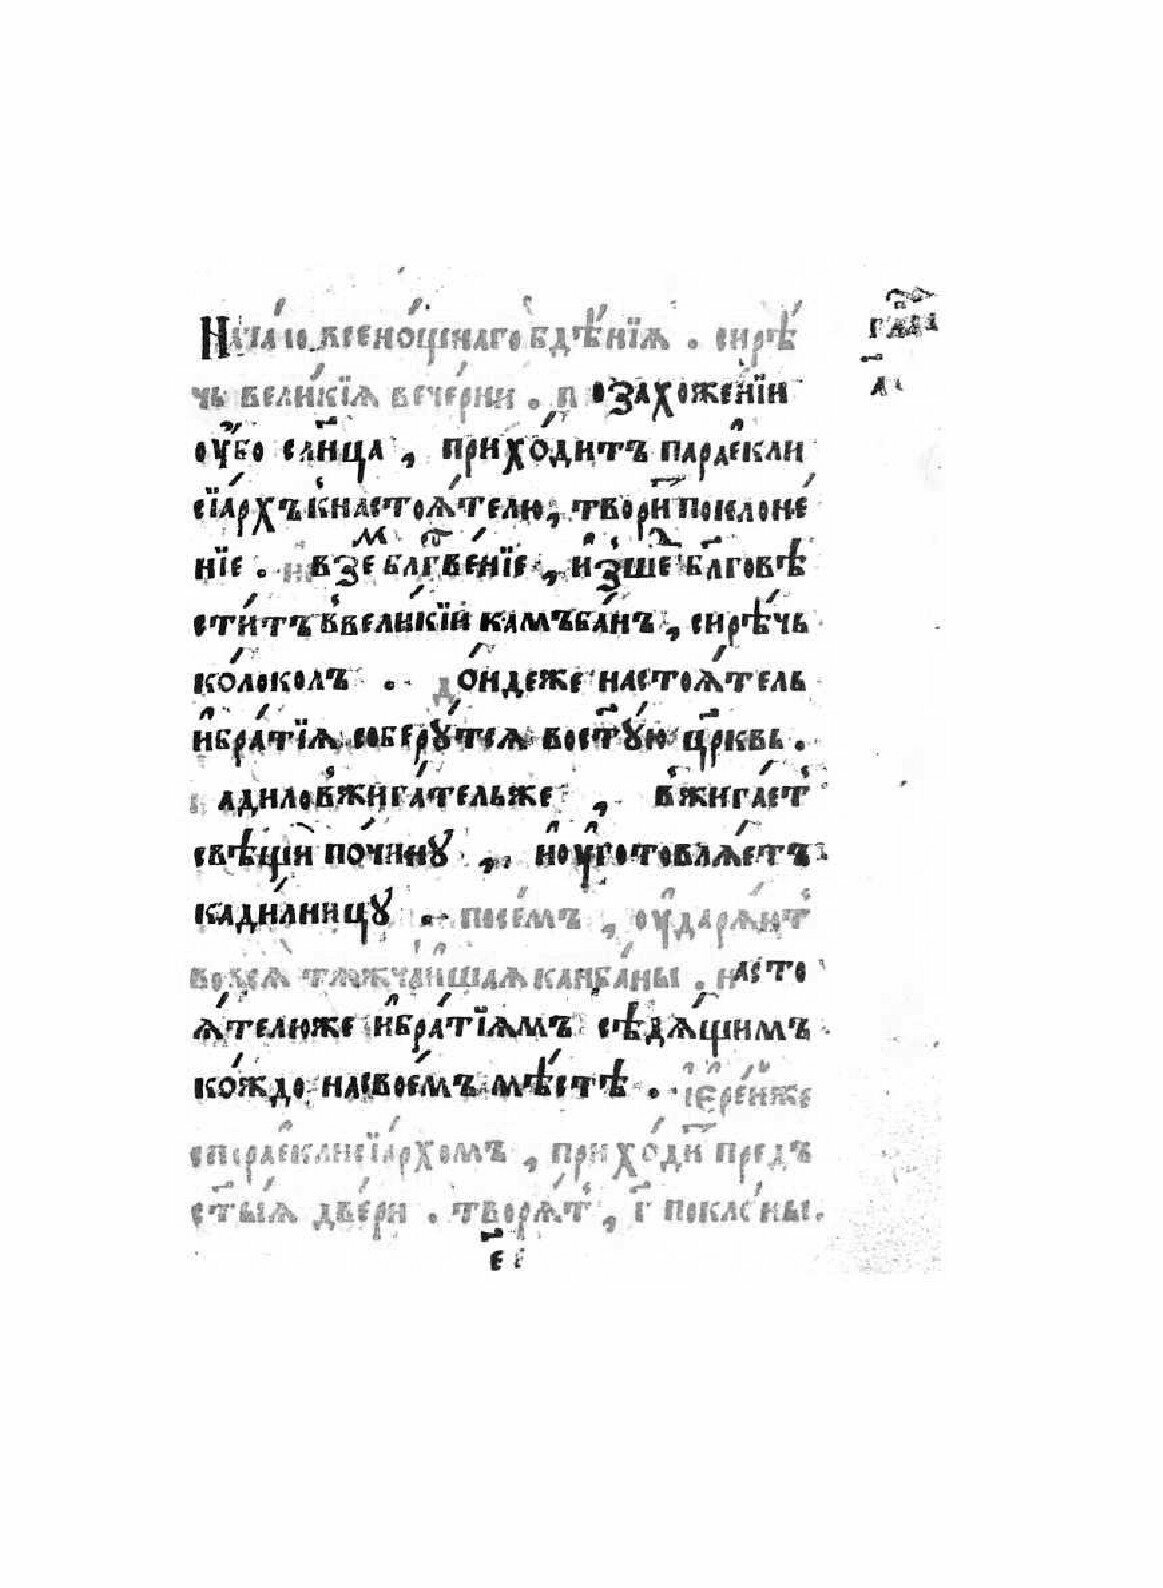 Нача́ло всено́щнаго бдѣ́нїѧ . сирѣ́
чь вели́кїѧ вече́рни . п озахоже́нїи
ᲂу҆́бо сл҃нца , прихо́дитъ параекли
сїа́рхъ кнастоѧ́телю, твори́ поклоне́
нїе . взе́м бл҃гⷭ҇ве́нїе , и҆зше́д бл҃говѣ
сти́тъ ввели́кїи камъба́нъ , сирѣ́чь
ко́локолъ . до́ндеже настоѧ́тель
и҆бра́тїѧ соберꙋ́тсѧ вост҃ꙋ́ю цр҃квь .
кадиловжига́тельже , вжига́ет
свѣщи́ почи́нꙋ , и҆ᲂу҆гото́влѧетъ
кади́лницꙋ . посе́мъ , ᲂу҆дарѧ́ют
вовсѧ̀ тѧжча́йшаѧ канба́ны . насто
ѧ́телюже и҆бра́тїѧмъ сѣдѧ́щимъ
ко́ждо насвое́мъ мѣ́стѣ . їере́иже
спараеклисїа́рхомъ , прихо́дит предъ
ст҃ы́ѧ две́ри . творѧ́т , г҃ покло́ны .
глава̀
а҃
е҃